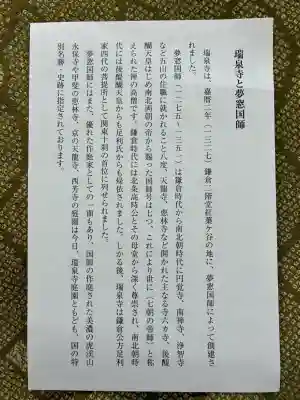 瑞泉寺と夢窓国師
瑞泉寺は、嘉暦二年（一三二七）鎌倉二階堂紅葉ケ谷の地に、夢窓国師によって創建さ
れました。
夢窓国師（一二七五～一三五一）は鎌倉時代から南北朝時代に円覚寺、南禅寺、浄智寺
など五山の住職に就かれること八度、天龍寺、恵林寺など開かれた主なる寺六カ寺、後醍
醐天皇はじめ南北両朝の帝から賜った国師号は七つ、これにより世に〔七朝の帝師〕と称
えられた禅の高僧です。鎌倉時代には北条高時公とその母堂から深く尊崇され、南北朝時
代には後醍醐天皇からも足利氏からも帰依されました。しかる後、瑞泉寺は鎌倉公方足利
家四代の菩提所として関東十刹の首位に列せられました。
夢窓国師にはまた、優れた作庭家としての一面もあり、国師の作庭された美濃の虎渓山
永保寺や甲斐の恵林寺、京の天龍寺、西芳寺の庭園は今日、瑞泉寺庭園ともども、国の特
別名勝・史跡に指定されております。